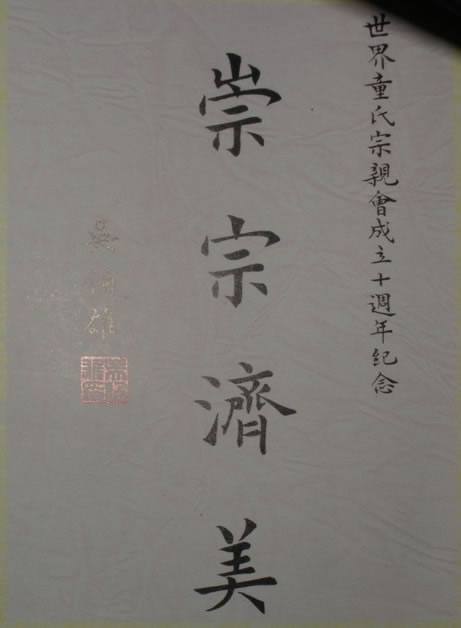 世界童氏宗親會成立十週年紀念
崇宗濟美
吳伯雄